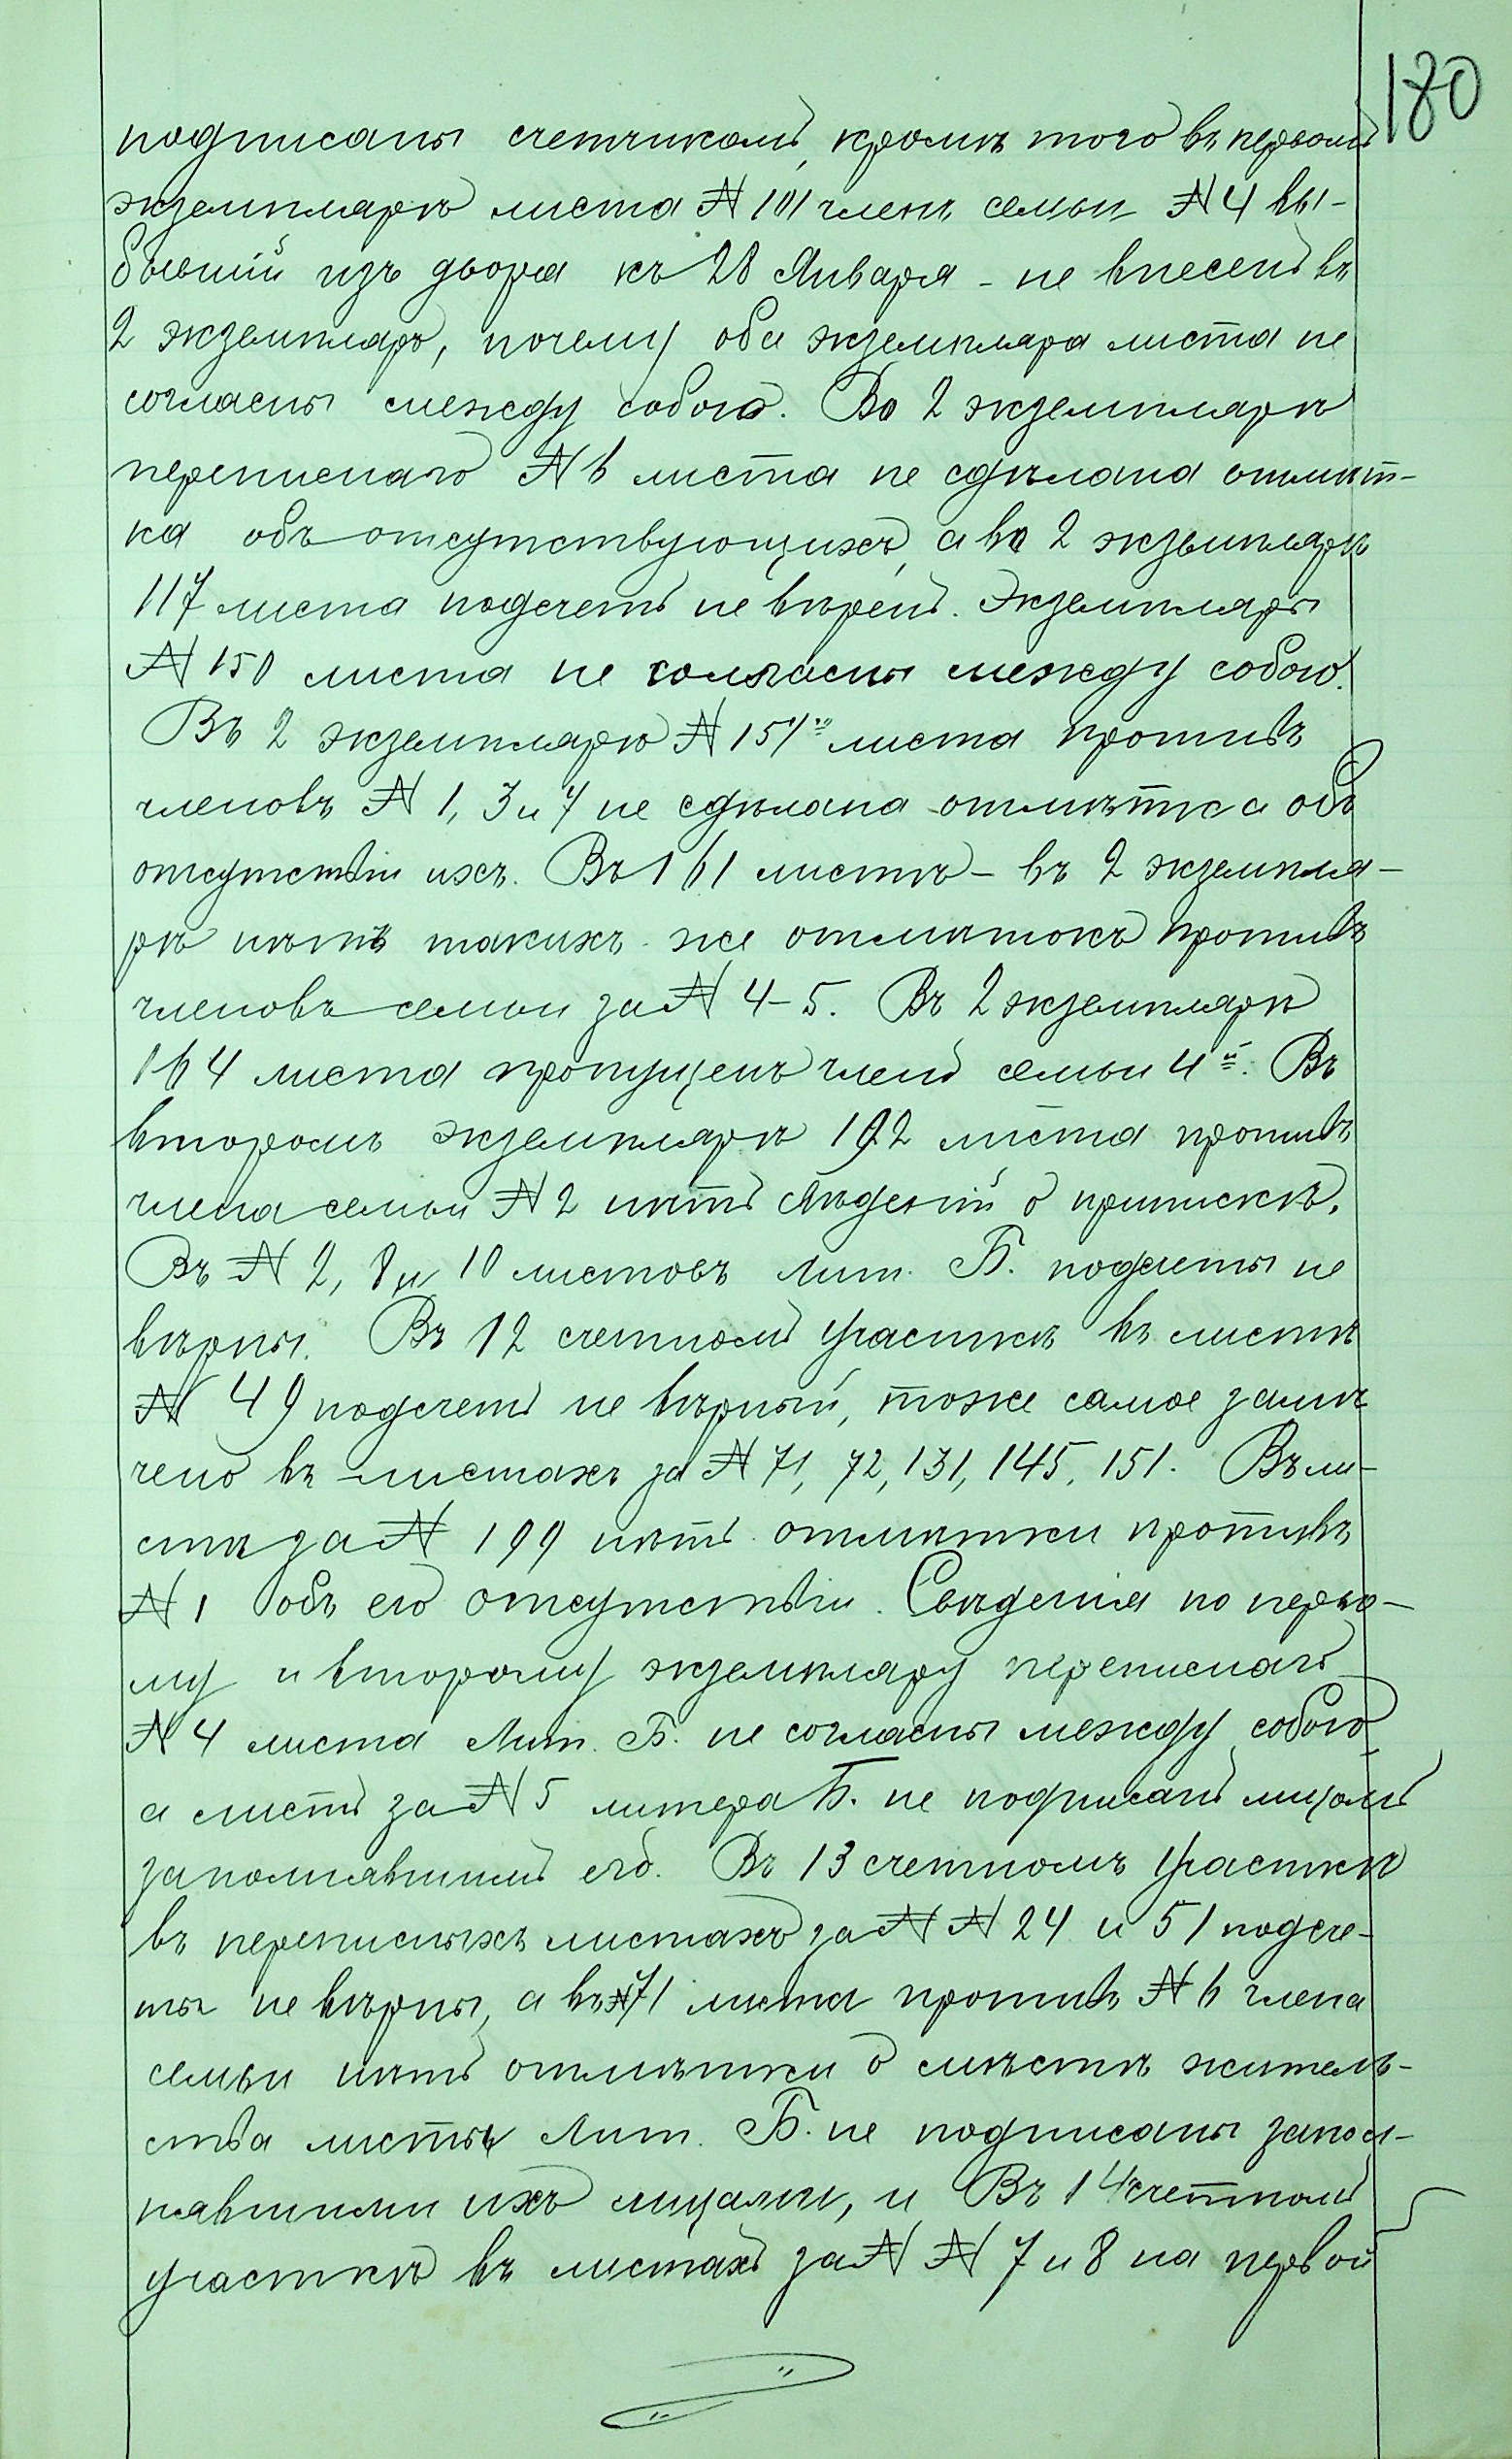 180
подписаны счетчикомъ, кромѣ того въ первомъ
экземплярѣ листа № 101 членъ семьи № 4 вы-
бывшій изъ двора къ 28 Января - не внесенъ въ
2 экземпляръ, почему оба экземпляра листа не
согласны между собою. Во 2 экземплярѣ
переписнаго № 6 листа не сдѣлана отмѣт-
ка объ отсутствующихъ, а во 2 экземплярѣ
117 листа подсчетъ не вѣренъ. Экземпляры
№ 150 листа не согласны между собою.
Въ 2 экземплярѣ № 151го листа противъ
членовъ № 1, 3 и 4 не сдѣлана отмѣтка объ
отсутствіи ихъ. Въ 161 листѣ - въ 2 экземпля-
рѣ нѣтъ такихъ же отмѣтокъ противъ
членовъ семьи за № 4-5. Въ 2 экземплярѣ
164 листа пропущенъ членъ семьи 4й. Въ
второмъ экземплярѣ 192 листа противъ
члена семьи № 2 нѣтъ свѣденій о припискѣ.
Въ № 2, 8 и 10 листовъ Лит. Б. подсчеты не
вѣрны. Въ 12 счетномъ участкѣ въ листѣ
№ 49 подсчетъ не вѣрный, тоже самое замѣ
чено въ листахъ за № 71, 72, 131, 145, 151. Въ ли-
стѣ за № 199 нѣтъ отмѣтки противъ
№ 1 объ его отсутствіи. Свѣденія по перво-
му и второму экземпляру переписнаго
№ 4 листа Лит. Б. не согласны между собою,
а листъ за № 5 литера Б. не подписанъ лицомъ
заполнявшимъ его. Въ 13 счетномъ участкѣ
въ переписныхъ листахъ за № № 24 и 51 подсче-
ты не вѣрны, а въ № 71 листа противъ № 6 члена
семьи нѣтъ отмѣтки о мѣстѣ житель-
ства листы Лит. Б. не подписаны запол-
нявшими ихъ лицами, и Въ 14 счетномъ
участкѣ въ листахъ за № № 7 и 8 на первой